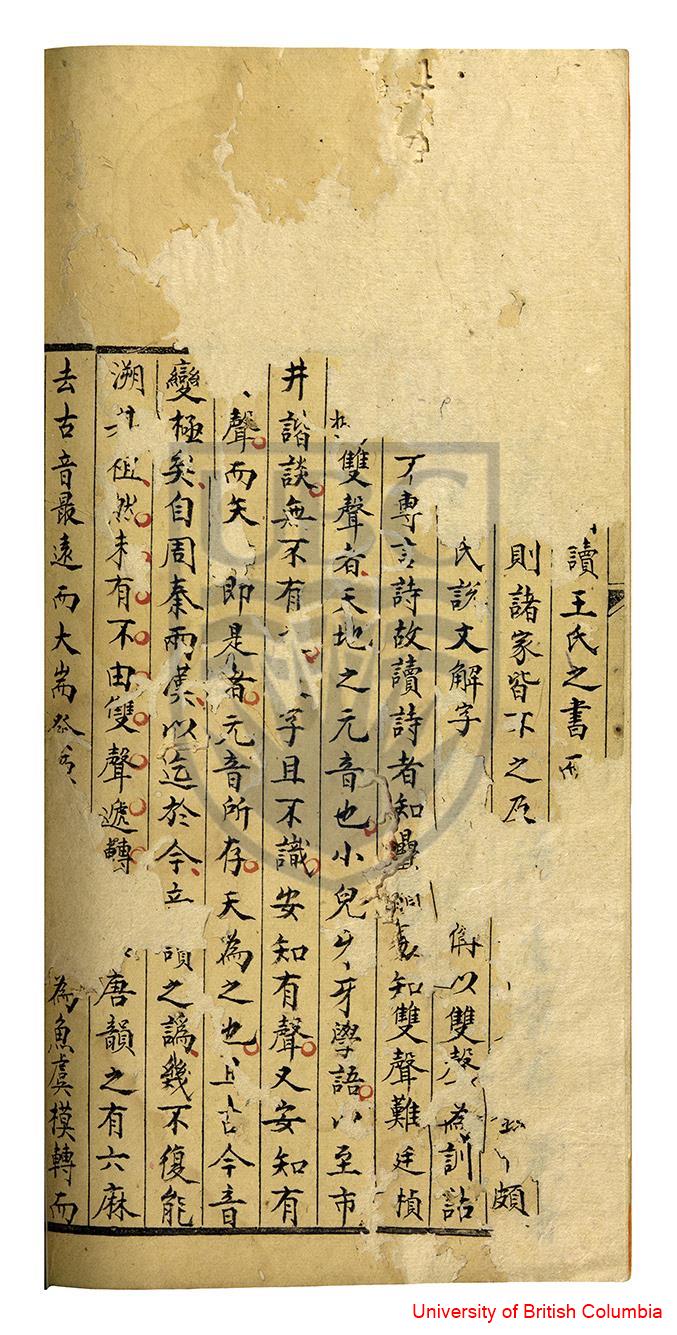 讀王氏之書
則諸家皆不之及 頗
氏說文解字 以雙聲為訓詁
專言詩故讀詩者知疊 知雙聲難廷楨
雙聲者天地之元音也小兒 牙學語以至市
井諧談無不有 字且不識安知有聲又安知有
聲而天 即是者元音所存天為之也 古今音
變極矣自周秦兩漢以迄於今 之譌幾不復能
溯其 然未有不由雙聲遞轉 唐韻之有六麻
去古音最遠而大耑 為魚虞模轉而
University of British Columbia